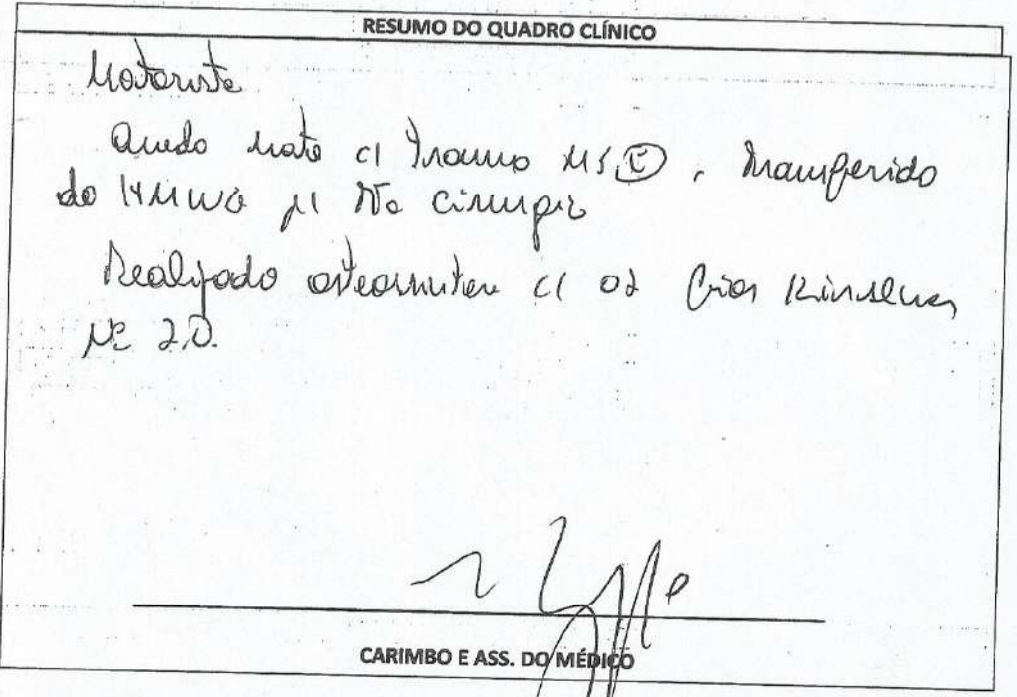 RESUMO DO QUADRO CLÍNICO
Motorista
Queda moto c/ trauma MS(E), transferido
do p/ cirurgia
Realizado osteossíntese c/ 02 fios Kirschner
Nº 2.0.
CARIMBO E ASS. DO MÉDICO